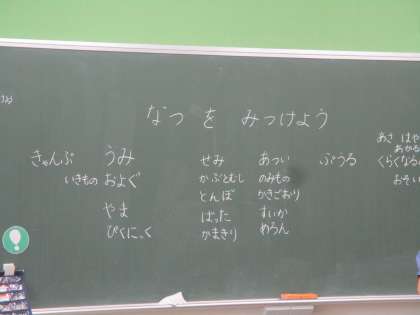 なつ を みつけよう
きゃんぷ
うみ
いきもの およぐ
やま
ぴくにっく
せみ
かぶとむし
とんぼ
ばった
かまきり
あつい
のみもの
かきごおり
すいか
めろん
ぷうる
あさ はや
あかる
くらくなる
おそい